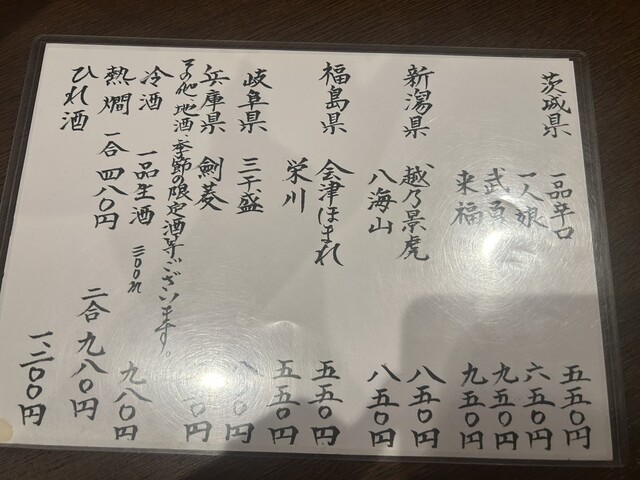 茨城県 一品辛口 五五〇円
一人娘 六五〇円
武勇 九五〇円
来福 九五〇円
新潟県 越乃景虎 八五〇円
八海山 八五〇円
福島県 会津ほまれ 五五〇円
栄川 五五〇円
岐阜県 三千盛 八 〇円
兵庫県 剣菱 〇円
その他、地酒、季節の限定酒等ございます。
冷酒 一品生酒 三〇〇ml 九八〇円
熱燗 一合 四八〇円 二合 九八〇円
ひれ酒 一、二〇〇円